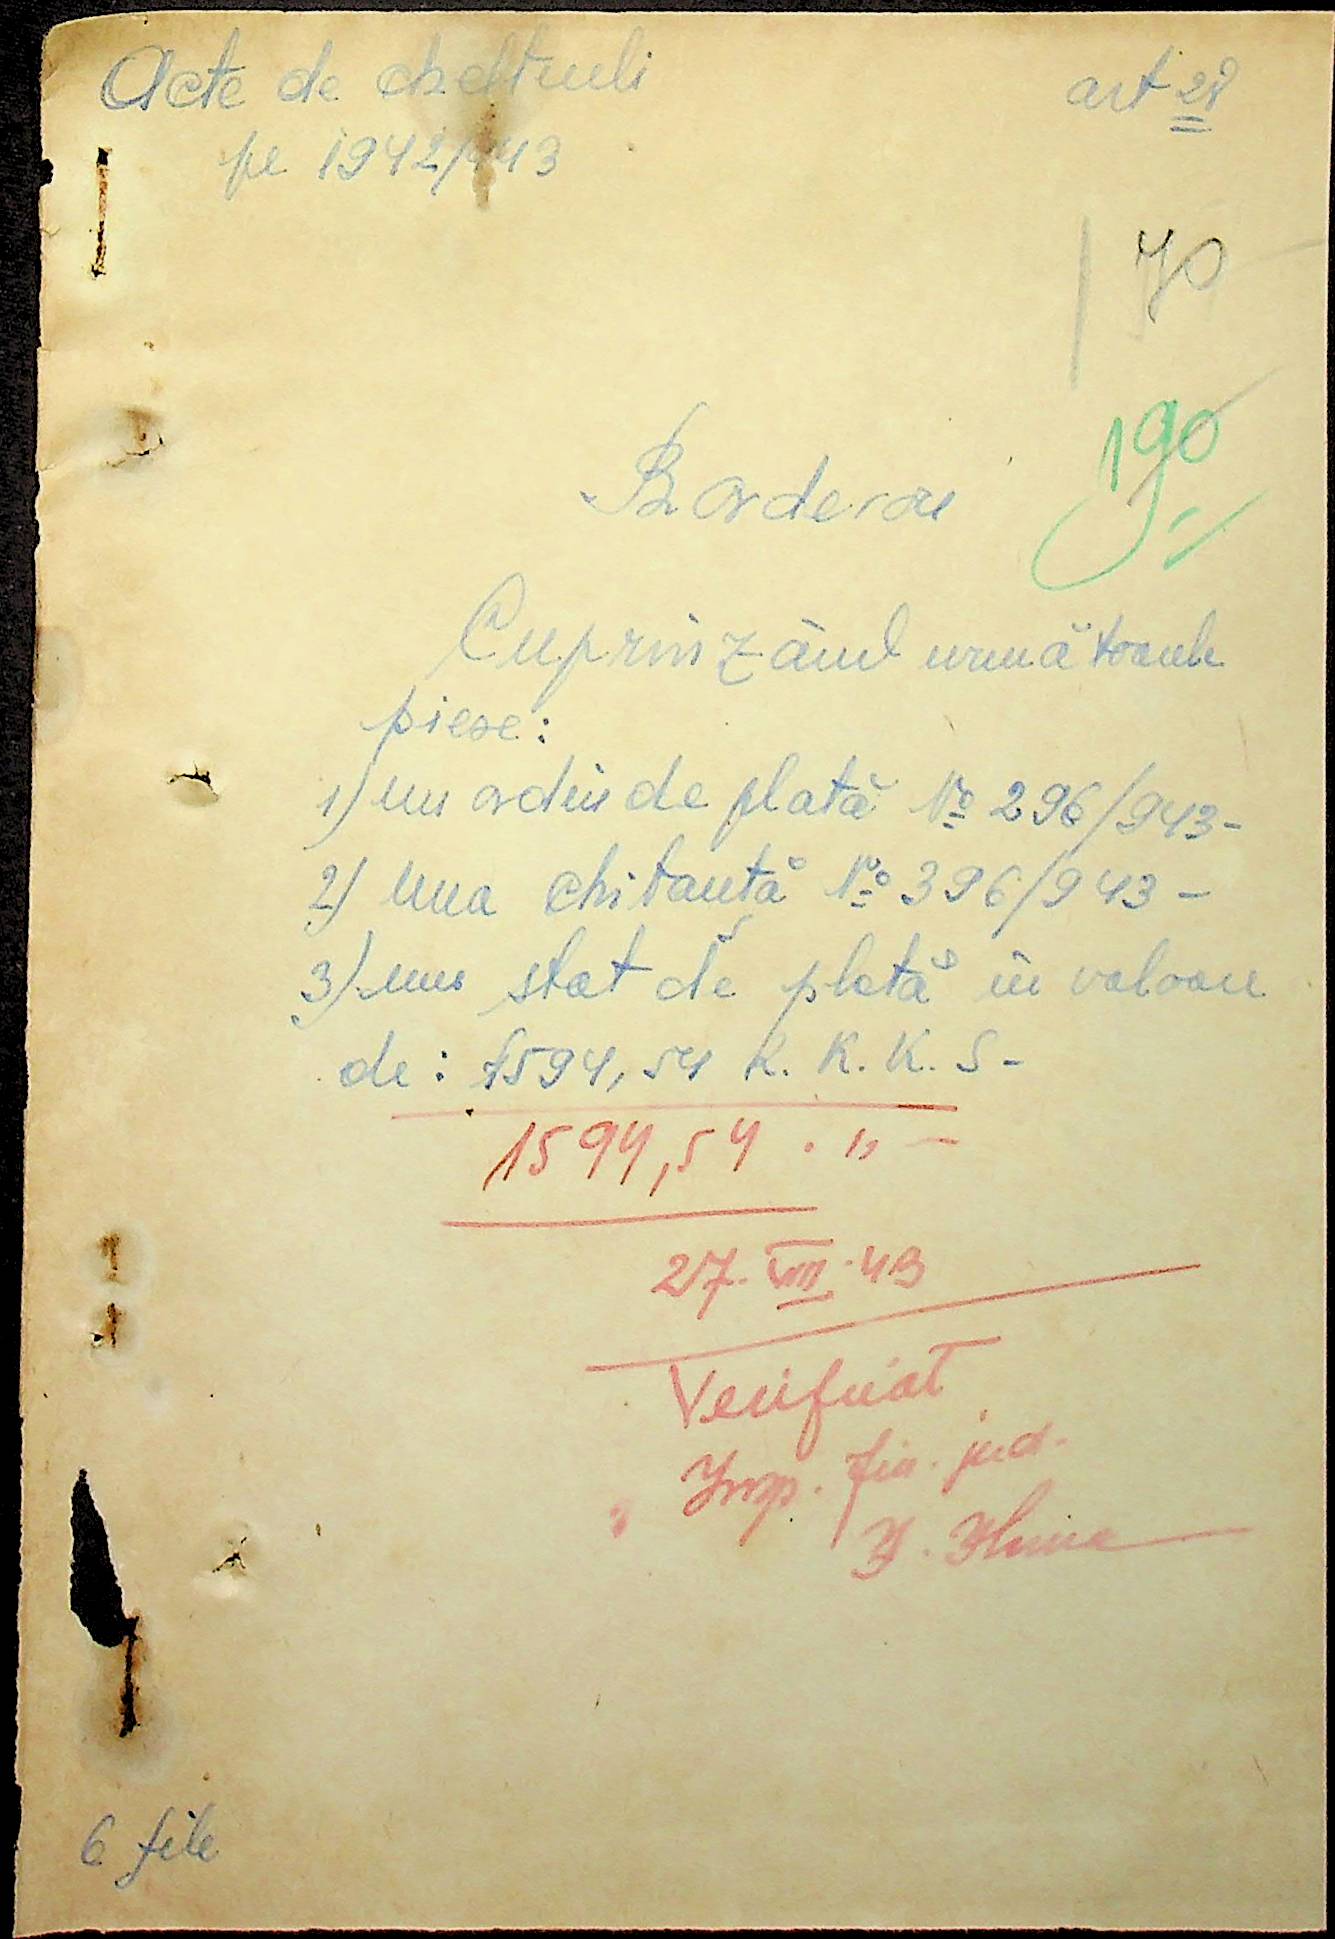 Acte de cheltueli art 28
pe 1942/943
70
190
Borderou
Cuprinzând următoarele
piese:
1) un ordin de plată No 296/943-
2) una chitanță No 396/943-
3) un stat de plată în valoare
de: 1594,54 R. K. K. S-
1594,54 . " -
27. VIII. 43
Verificat
Insp. fin. jud.
6 file